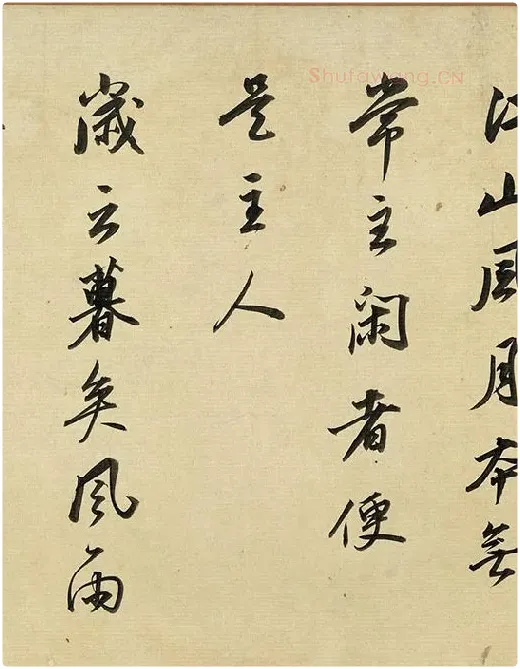 江山風月本無
常主閑者便
是主人
歲云暮矣風雨
Shufawang.CN